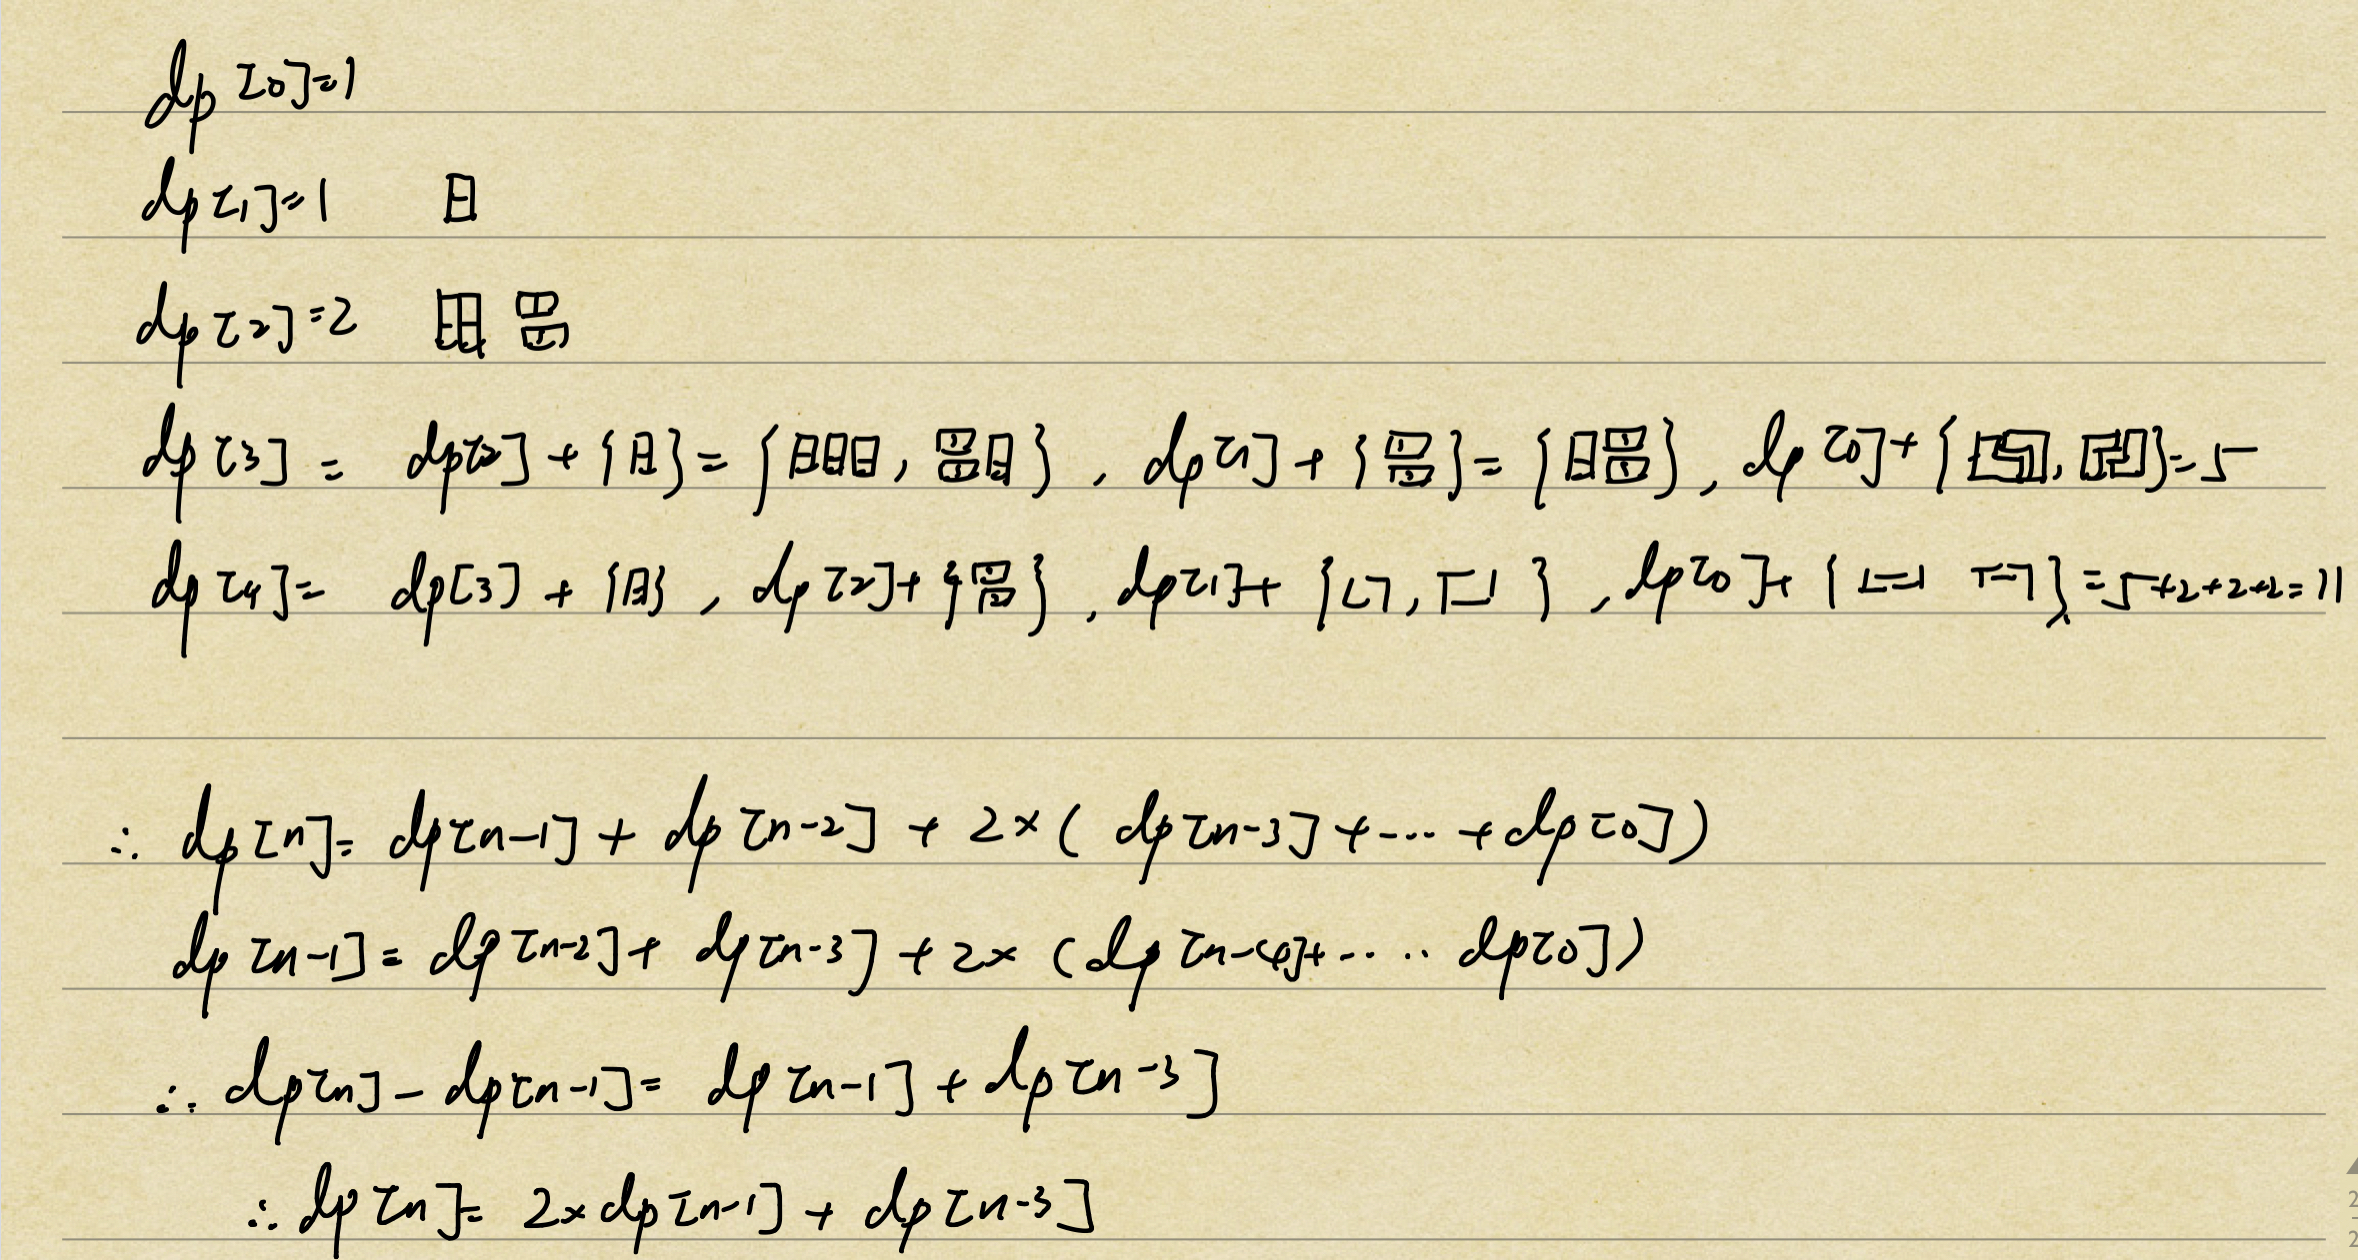 dp[0]=1
dp[1]=1
dp[2]=2
dp[3] = dp[2] + { } = { , }, dp[1] + { } = { }, dp[0] + { , } = 5
dp[4] = dp[3] + { }, dp[2] + { }, dp[1] + { , }, dp[0] + { } = 5+2+2+2=11
∴ dp[n] = dp[n-1] + dp[n-2] + 2×( dp[n-3] + ... + dp[0])
dp[n-1] = dp[n-2] + dp[n-3] + 2× (dp[n-4]+..... dp[0])
∴ dp[n] - dp[n-1] = dp[n-1] + dp[n-3]
∴ dp[n] = 2×dp[n-1] + dp[n-3]
2
2